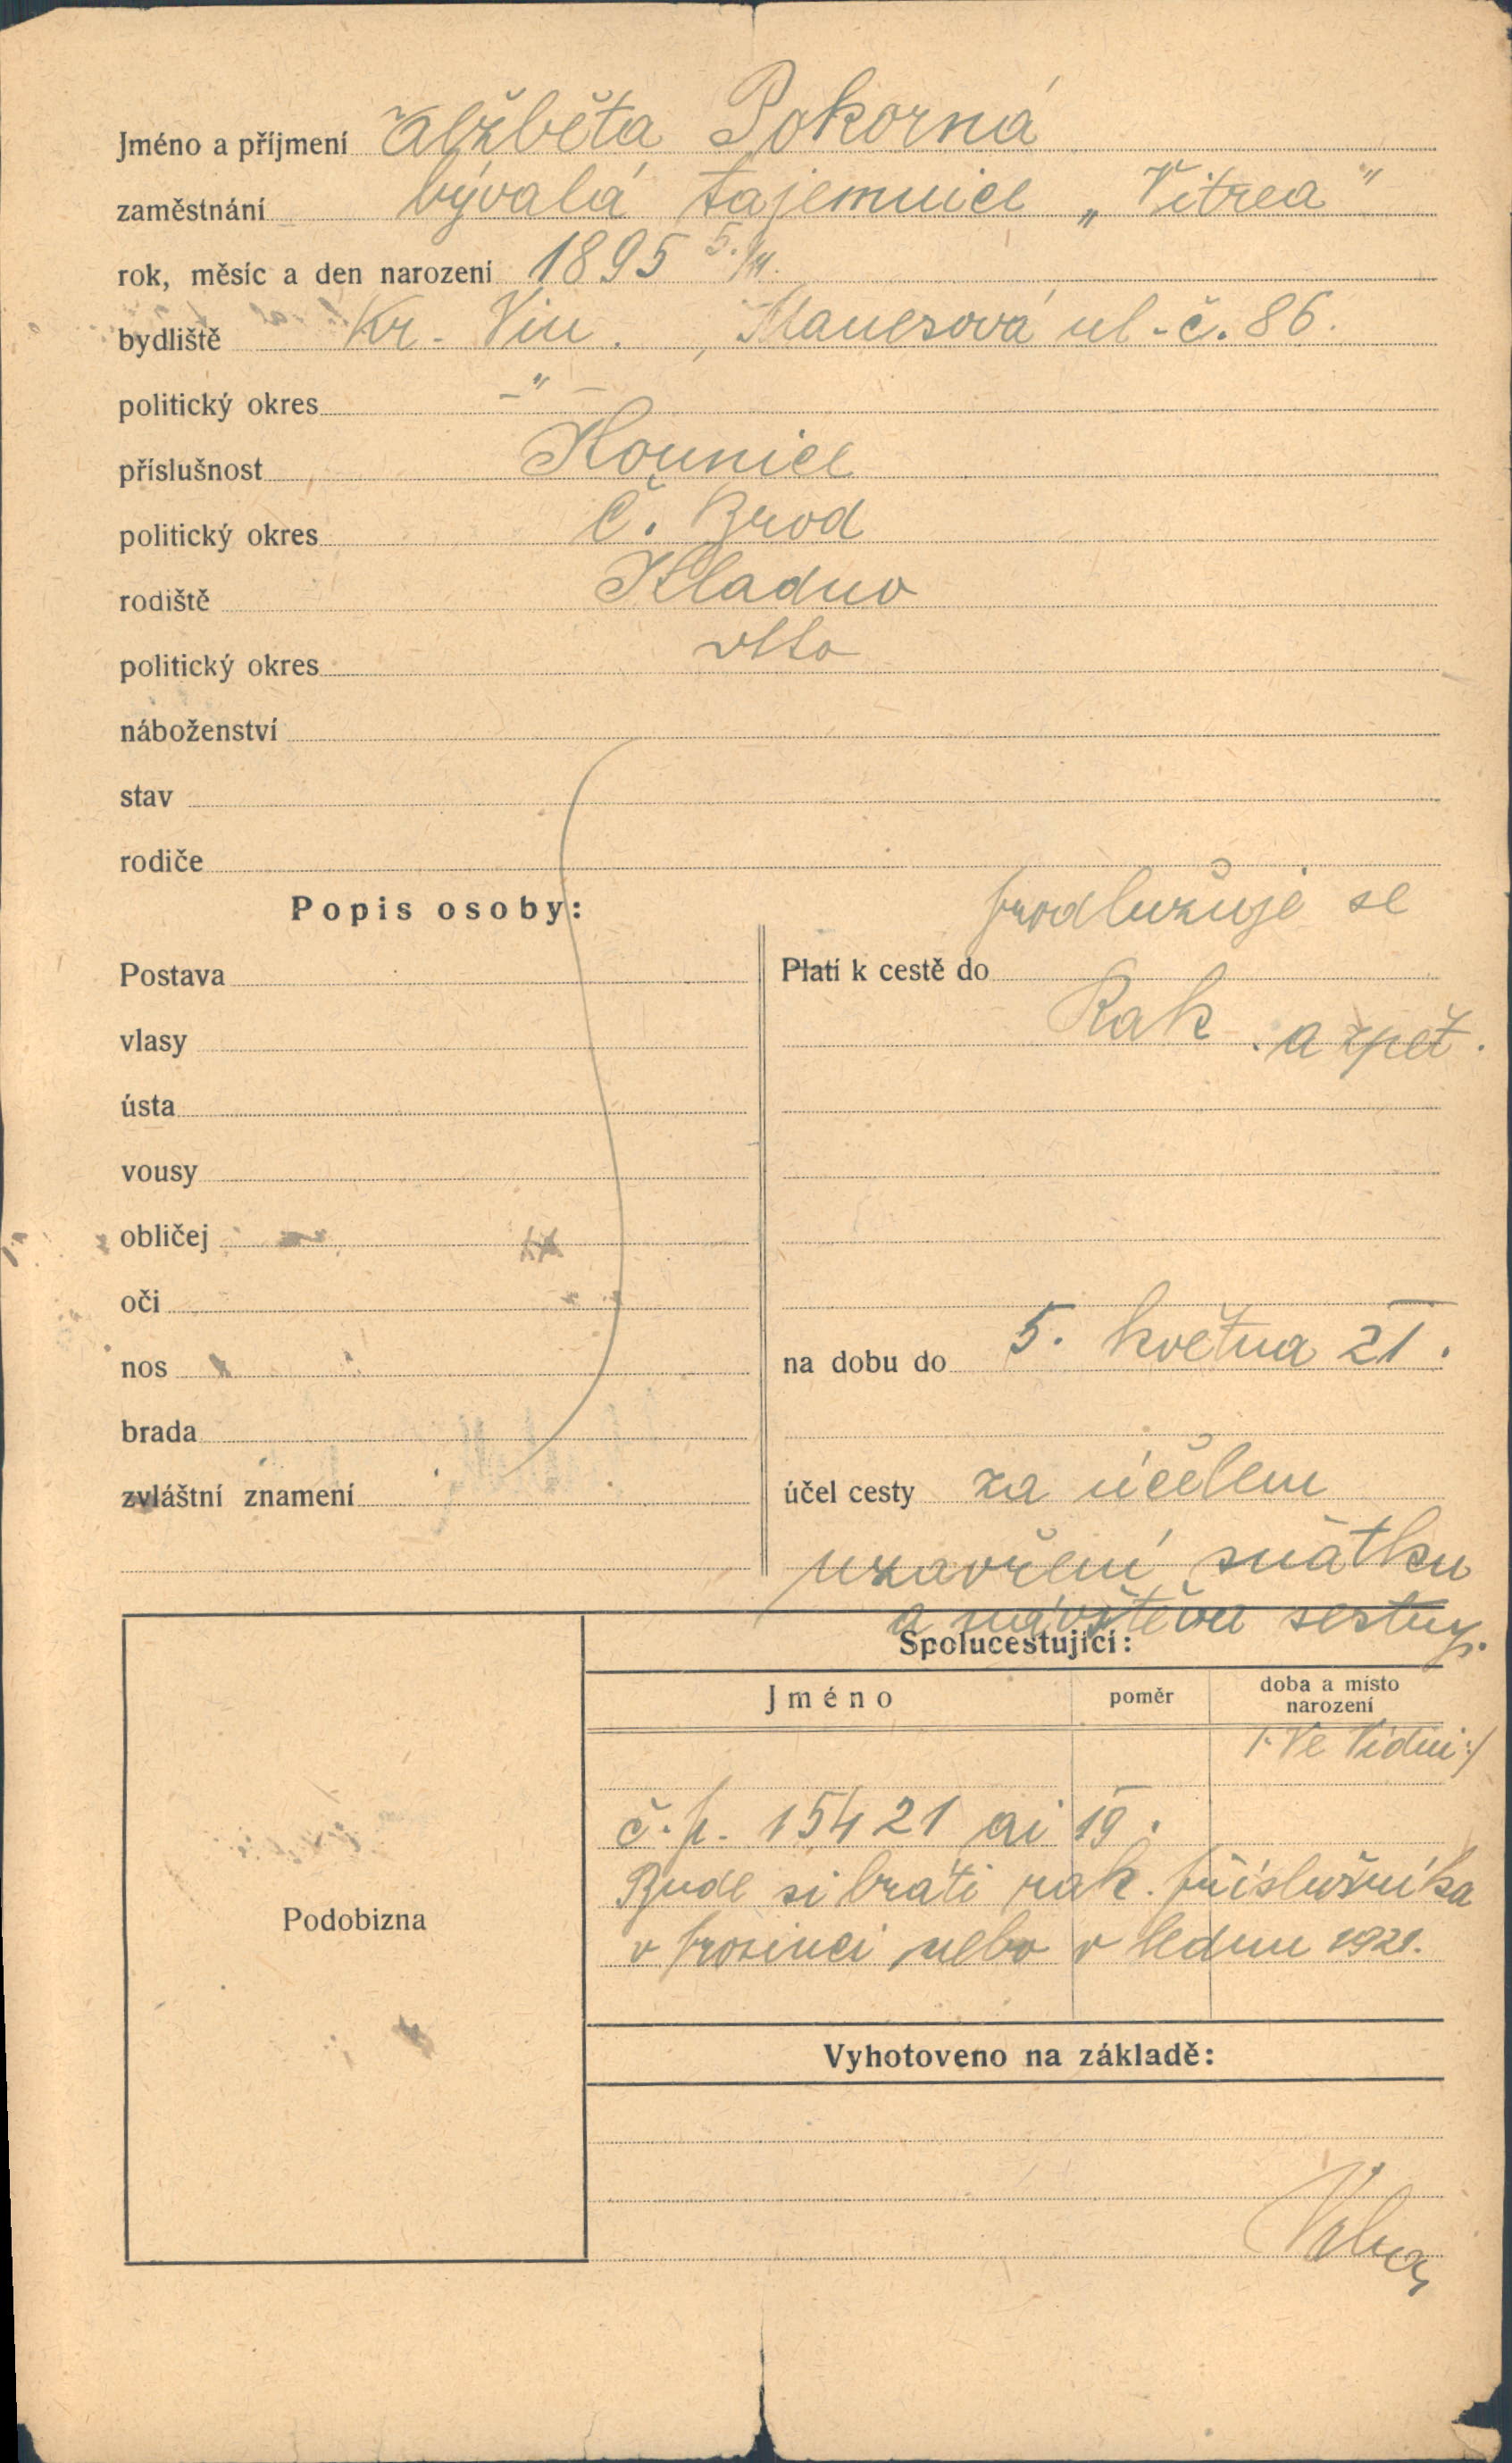 Jméno a příjmení Alžběta Pokorná
zaměstnání bývalá tajemnice „Vitrea"
rok, měsíc a den narození 1895 5./4.
bydliště Kr. Vin., Manesová ul. č. 86.
politický okres —"—
příslušnost Kounice
politický okres Č. Brod
rodiště Kladno
politický okres dtto
náboženství
stav
rodiče
Popis osoby:
Postava
vlasy
ústa
vousy
obličej
oči
nos
brada
zvláštní znamení
prodlužuje se
Platí k cestě do
Rak. a zpět.
na dobu do 5. května 21.
účel cesty za účelem
uzavření sňatku
a návštěvu sestry.
Spolucestující:
Jméno poměr doba a místo
narození
/: Ve Vídni :/
č. p. 15421 ai 19.
Bude si bráti rak. příslušníka
v prosinci nebo v lednu 1921.
Podobizna
Vyhotoveno na základě: